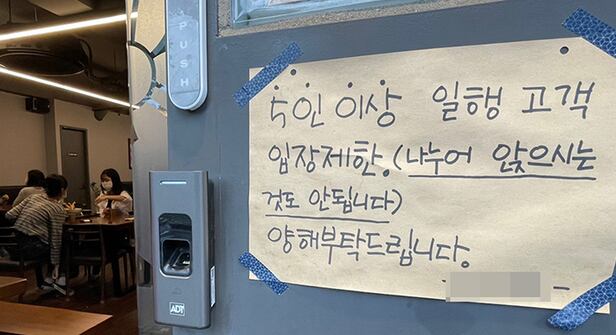 PUSH
5인 이상 일행 고객
입장제한.(나누어 앉으시는
것도 안됩니다)
양해부탁드립니다.
ADT